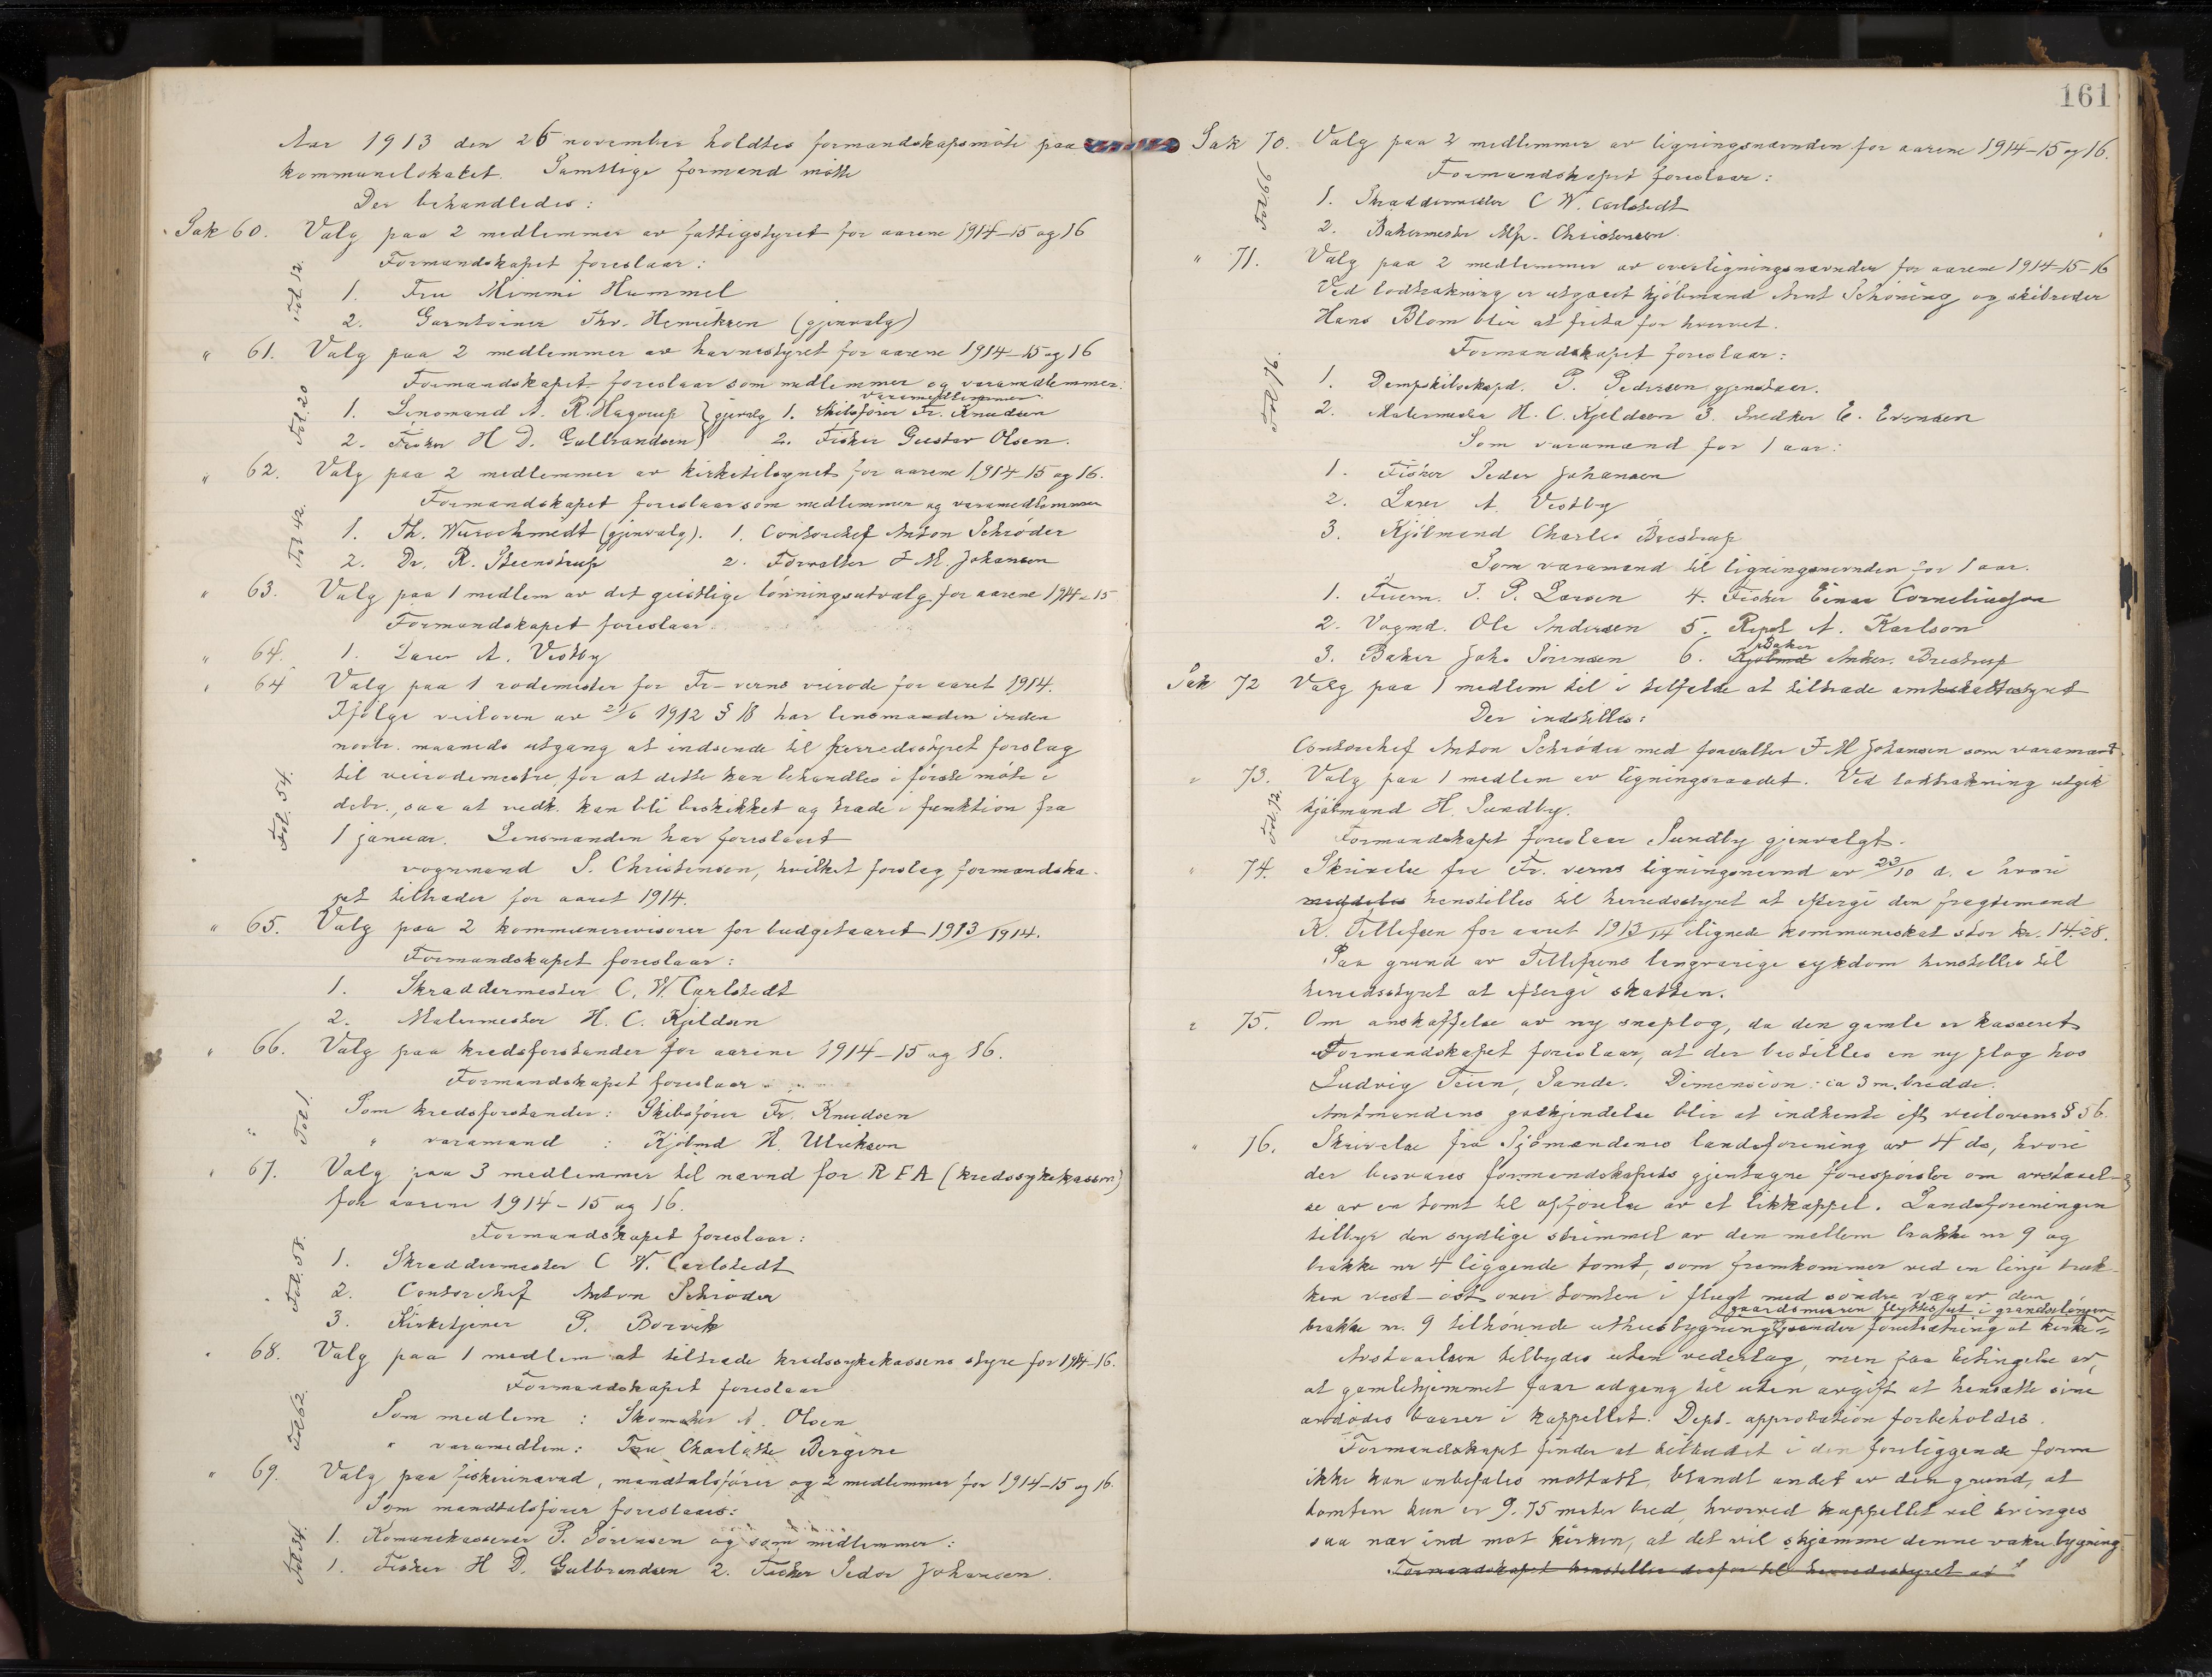 Aar 1913 den 26 november holdtes formandskapsmöte paa
kommunelokalet. Samtlige formænd mötte
Der behandledes:
Sak 60. Valg paa 2 medlemmer av fattigstyret for aarene 1914-15 og 16
Fol. 12.
Formandskapet foreslaar:
1. Fru Mimmi Hummel
2. Garntoiner Thv. Henriksen (gjenvalg)
" 61. Valg paa 2 medlemmer av havnestyret for aarene 1914-15 og 16
Fol. 20
Formandskapet foreslaar som medlemmer og varamedlemmer:
varamedlemmer
1. Lensmand A. R. Hagerup } gjenvalg 1. Skibsfører Fr. Knudsen
2. Fisker H D. Gulbrandsen } 2. Fisker Gustav Olsen.
" 62. Valg paa 2 medlemmer av kirketilsynet for aarene 1914-15 og 16.
Fol. 42.
Formandskapet foreslaar som medlemmer og varamedlemmer
1. Th. Wurschmidt (gjenvalg). 1. Contorchef Anton Schröder
2. Dr. R. Steenstrup 2. Forvalter J M. Johansen
" 63. Valg paa 1 medlem av det geistlige lönningsutvalg for aarene 1914-15
Formandskapet foreslaar.
" 64. 1. Lærer A. Vestby
" 64 Valg paa 1 rodemester for Fr-verns veirode for aaret 1914.
Ifölge veiloven av 21/6 1912 § 18 har lensmanden inden
novbr. maaneds utgang at indsende til herredsstyret forslag
til veirodemestre, for at dette kan behandles i förste möte i
Fol. 54.
debr., saa at vedk. kan bli beskikket og træde i funktion fra
1 januar. Lensmanden har foreslaaet
vognmand S. Christensen, hvilket forslag formandska-
pet tiltræder for aaret 1914.
" 65. Valg paa 2 kommunerevisorer for budgetaaret 1913/1914.
Formandskapet foreslaar:
1. Skræddermester C. W. Carlstedt
2. Malermester H. C. Kjeldsen
" 66. Valg paa kredsforstander for aarene 1914-15 og 16.
Formandskapet foreslaar
Fol 1.
Som kredsforstander: Skibsfører Fr. Knudsen
" varamand : Kjöbmd H. Ulriksen
" 67. Valg paa 3 medlemmer til nævnd for R F A (kredssykekassen)
for aarene 1914-15 og 16.
Formandskapet foreslaar:
Fol. 58.
1. Skræddermester C W. Carlstedt
2. Contorchef Anton Schröder
3. Kirketjener P. Borvik
" 68. Valg paa 1 medlem at tiltræde kredssykekassens styre for 1914-16.
Formandskapet foreslaar
Fol 62.
Som medlem : Skomaker A. Olsen
" varamedlem: Fru Charlotte Bergene
" 69. Valg paa fiskerinævnd, mandtalsförer og 2 medlemmer for 1914-15 og 16.
Som mandtalsförer foreslaaes:
1. Komunekasserer P. Sörensen og som medlemmer:
1. Fisker H D. Gulbrandsen 2. Fisker Peder Johansen.
161
Sak 70. Valg paa 2 medlemmer av ligningsnævnden for aarene 1914-15 og 16.
Formandskapet foreslaar:
1. Skræddermester C W. Carlstedt
2. Bakermester Alfr. Christensen.
" 71. Valg paa 2 medlemmer av overligningsnævnden for aarene 1914-15-16
Ved lodtrækning er utgaaet kjöbmand Arnt Schöning og skibreder
Hans Blom blir at frita for hvervet.
Formandskapet foreslaar:
1. Dampskibskapt. P. Pedersen gjenstaar.
2. Malermester H. C. Kjeldsen 3. Snedker E. Evensen
Som varamænd for 1 aar:
1. Fisker Peder Johansen
2. Lærer A. Vestby
3. Kjöbmand Charles Brestrup
Som varamænd til ligningsnævnden for 1 aar.
1. Fuerm. J. P. Larsen 4. Fisker Einar Corneliussen
2. Vogmd. Ole Andersen 5. Repsl A. Karlson
3. Baker Joh. Sörensen 6. Kjöbmd Baker Anker. Brestrup
Sak 72 Valg paa 1 medlem til i tilfælde at tiltræde amtsskattestyret
Der indstilles:
Contorchef Anton Schröder med forvalter J M Johansen som varamand.
" 73. Valg paa 1 medlem av ligningsraadet. Ved loddtrækning utgik
Fol. 12.
kjöbmand H. Sundby.
Formandskapet foreslaar Sundby gjenvalgt.
" 74. Skrivelse fra Fr. verns ligningsnevnd av 23/10 d. a hvori
meddeles henstilles til herredsstyret at eftergi den fragtemand
K. Tellefsen for aaret 1913/14 ilignede kommuneskat stor kr. 14.28.
Paa grund av Tellefsens langvarige sykdom henstilles til
herredsstyret at eftergi skatten.
" 75. Om anskaffelse av ny sneplog, da den gamle er kasseret
Formandskapet foreslaar, at der bestilles en ny plog hos
Ludvig Teien, Sande. Dimension: ca 3 m. bredde.
Amtmandens godkjendelse blir at indhente eft veilovens § 56.
" 76. Skrivelse fra Sjömændenes landsforening av 4 ds, hvori
der besvares formandskapets gjentagne forespörsler om avstaael-
se av en tomt til opförelse av et likkappel. Landsforeningen
tilbyr den sydlige strimmel av den mellem brakke nr 9 og
brakke nr 4 liggende tomt, som fremkommer ved en linje truk-
ken vest-öst over tomten i flugt med söndre væg av den
gaardsmuren flyttes ut i grændselinjen
brakke nr. 9 tilhörende uthusbygning, under forutsætning at kirke-
Avstaaelsen tilbydes uten vederlag, men paa betingelse av,
at gamlehjemmet faar adgang til uten avgift at hensætte sine
avdödes baarer i kappellet. Dept. approbation forbeholdes.
Formandskapet finder at tilbudet i den foreliggende form
ikke kan anbefales mottatt, blandt andet av den grund, at
tomten kun er 9.75 meter bred, hvorved kappellet vil bringes
saa nær ind mot kirken, at det vil skjæmme denne vakre bygning
Formandskapet henstiller derfor til herredsstyret at